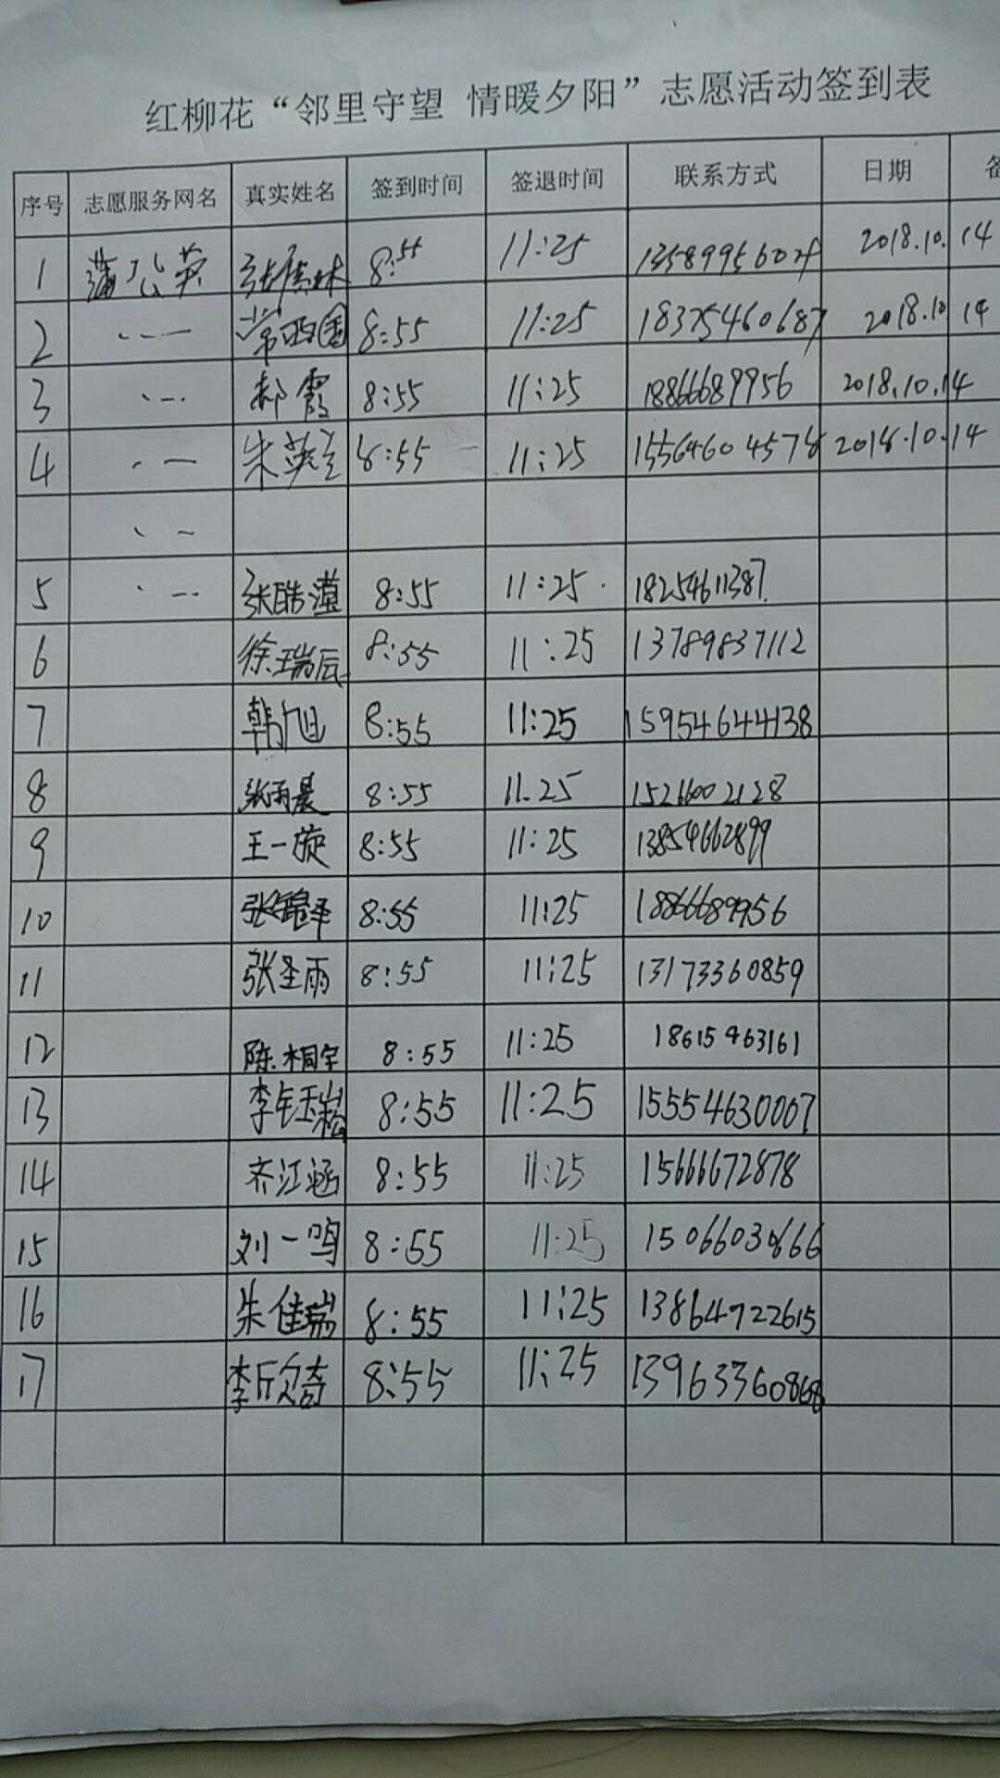 红柳花“邻里守望 情暖夕阳”志愿活动签到表
序号 志愿服务网名 真实姓名 签到时间 签退时间 联系方式 日期
1 蒲公英 8:55 11:25 2018.10.14
2 常西国 8:55 11:25 18375460687 2018.10.14
3 郝霞 8:55 11:25 18866689956 2018.10.14
4 朱英 8:55 11:25 15564604578 2018.10.14
5 张皓 8:55 11:25 18254611387
6 徐瑞辰 8:55 11:25 13789837112
7 韩旭 8:55 11:25 15954644138
8 张雨晨 8:55 11.25 15266002128
9 王一旋 8:55 11:25 13854662899
10 8:55 11:25 18866689956
11 张圣雨 8:55 11:25 13173360859
12 陈桐宇 8:55 11:25 18615463161
13 李钰 8:55 11:25 15554630007
14 齐江涵 8:55 11:25 15666672878
15 刘一鸣 8:55 11:25 15066030666
16 朱佳瑞 8:55 11:25 13864722615
17 李欣奇 8:55 11:25 13963360868